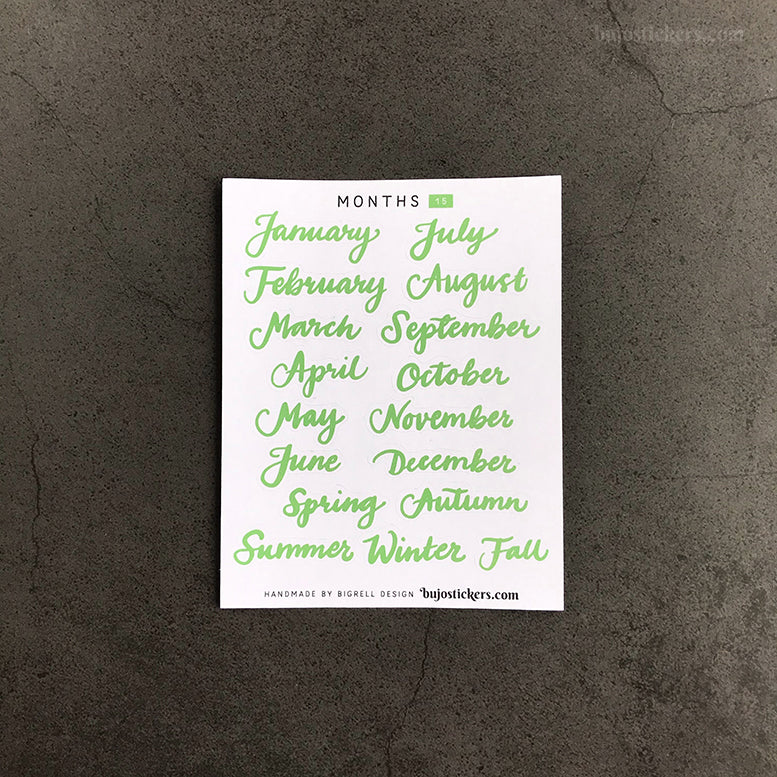 bujostickers.com
MONTHS 15
January July
February August
March September
April October
May November
June December
Spring Autumn
Summer Winter Fall
HANDMADE BY BIGRELL DESIGN bujostickers.com